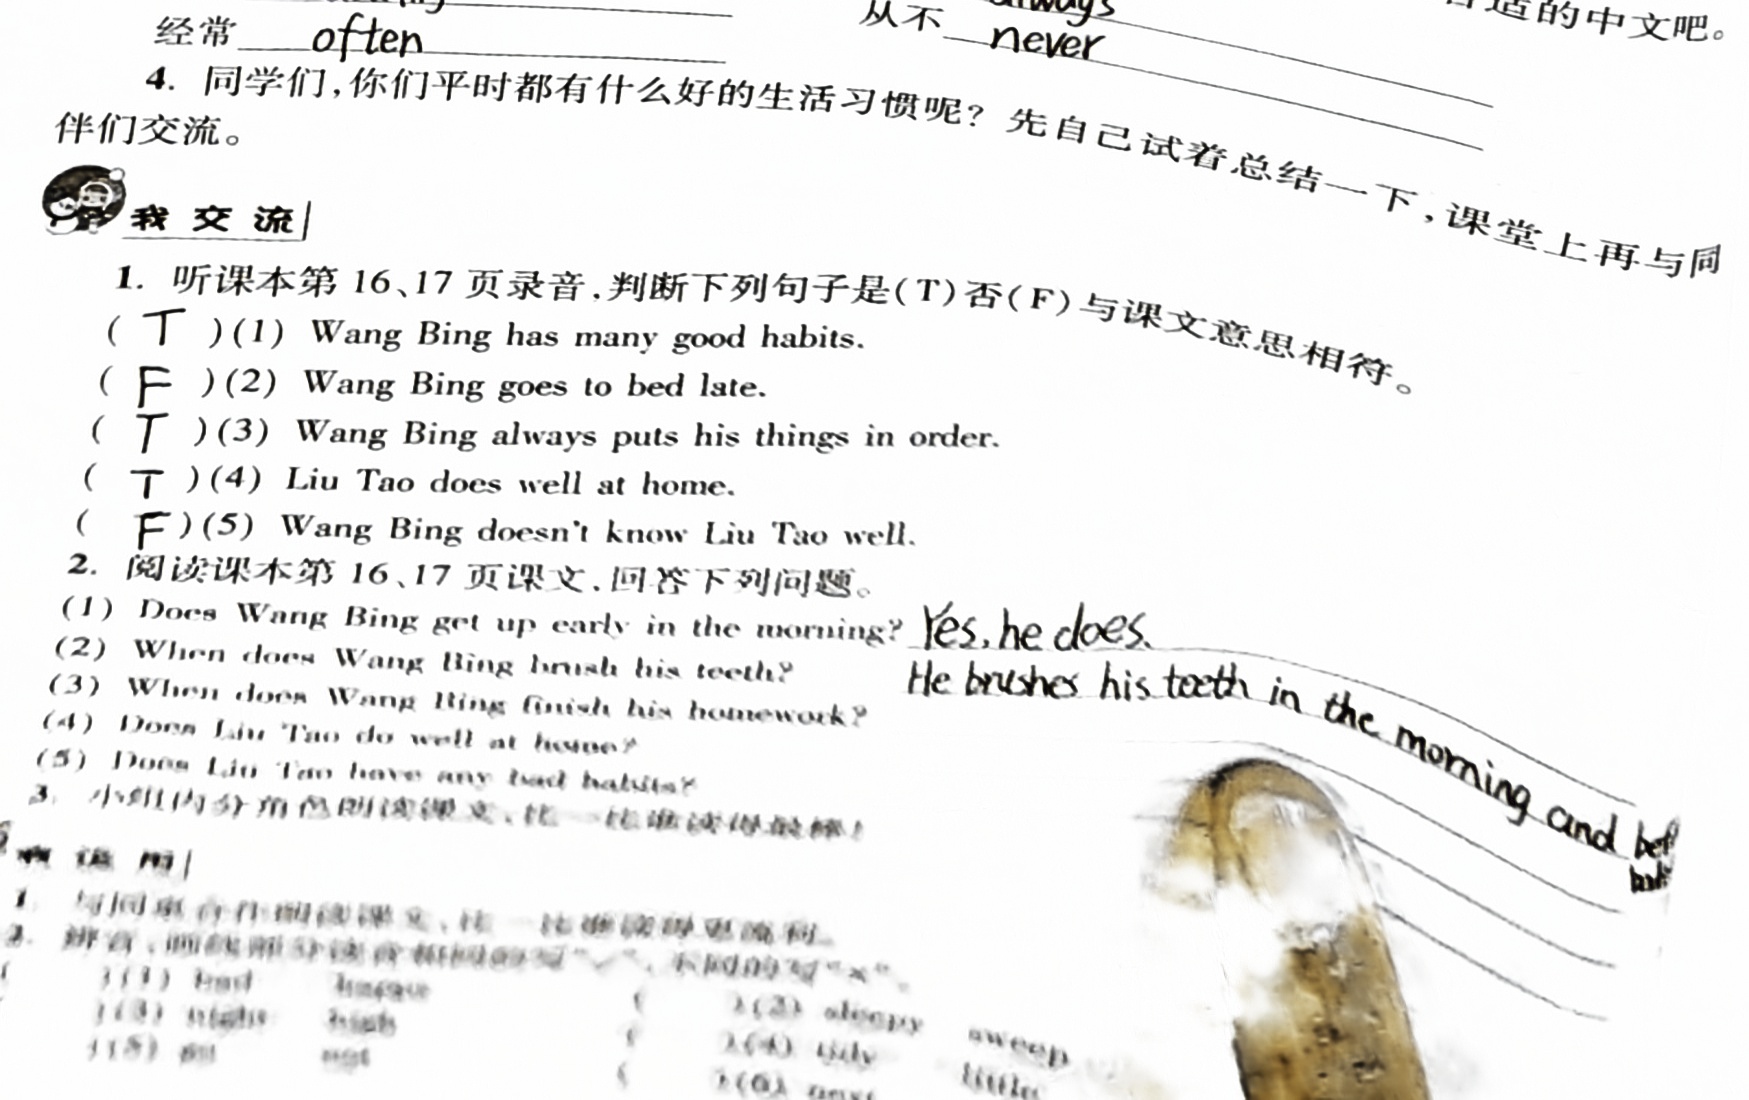 适的中文吧。
经常 often 从不 never
4. 同学们,你们平时都有什么好的生活习惯呢? 先自己试着总结一下,课堂上再与同
伴们交流。
我交流
1. 听课本第16、17页录音,判断下列句子是(T)否(F)与课文意思相符。
( T )(1) Wang Bing has many good habits.
( F )(2) Wang Bing goes to bed late.
( T )(3) Wang Bing always puts his things in order.
( T )(4) Liu Tao does well at home.
( F )(5) Wang Bing doesn't know Liu Tao well.
2. 阅读课本第16、17页课文,回答下列问题。
(1) Does Wang Bing get up early in the morning? Yes, he does.
(2) When does Wang Bing brush his teeth? He brushes his teeth in the morning and
(3) When does Wang Bing finish his homework?
(4) Does Liu Tao do well at home?
(5) Does Liu Tao have any bad habits?
3. 小组内分角色朗读课文,比一比谁读得最棒!
1. 与同桌合作朗读课文,比一比谁读得更流利。
2. 辨音,画线部分读音相同的写"✓",不同的写"×"。
)(1) bad
)(3) night high
)(2) sleepy sweep
)(4) tidy little
)(6)